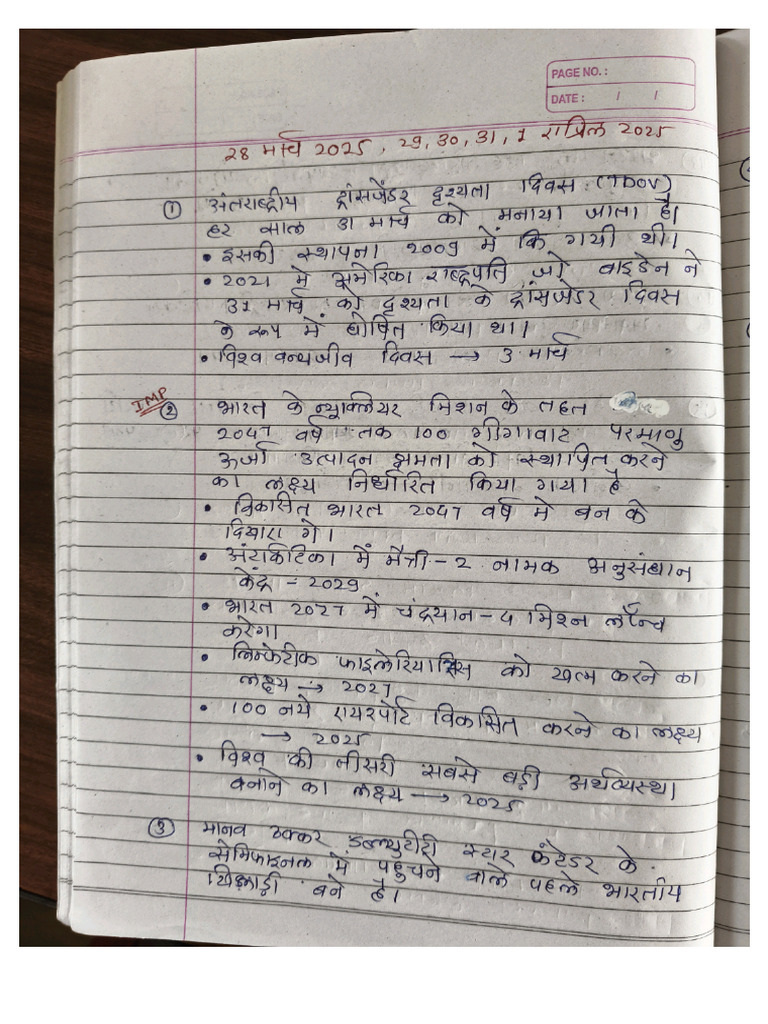 PAGE NO. :
DATE : / /
28 मार्च 2025 , 29, 30, 31, 1 एप्रिल 2025
① अंतराष्ट्रीय ट्रांसजेंडर दृश्यता दिवस (TDOV)
हर साल 31 मार्च को मनाया जाता है।
• इसकी स्थापना 2009 में कि गयी थी।
• 2021 मे अमेरिका राष्ट्रपति जो बाइडेन ने
31 मार्च को दृश्यता के ट्रांसजेंडर दिवस
के रूप में घोषित किया था।
• विश्व वन्यजीव दिवस → 3 मार्च
IMP ② भारत के न्यूक्लियर मिशन के तहत
2047 वर्ष तक 100 गीगावाट परमाणु
ऊर्जा उत्पादन क्षमता को स्थापित करने
का लक्ष्य निर्धारित किया गया है
• विकासित भारत 2047 वर्ष मे बन के
दिखाए गे।
• अंटार्कटिका में मैत्री - 2 नामक अनुसंधान
केंद्र - 2029
• भारत 2027 में चंद्रयान - 4 मिशन लॉन्च
करेगा
• लिम्फेटीक फाइलेरियासिस को खत्म करने का
लक्ष्य → 2027
• 100 नये एयरपोर्ट विकासित करने का लक्ष्य
→ 2025
• विश्व की तीसरी सबसे बड़ी अर्थव्यस्था
बनाने का लक्ष्य → 2025
③ मानव ठक्कर डब्ल्युटीटी स्टार कंटेडर के
सेमिफाइनल में पहुचने वाले पहले भारतीय
खिलाड़ी बने है।